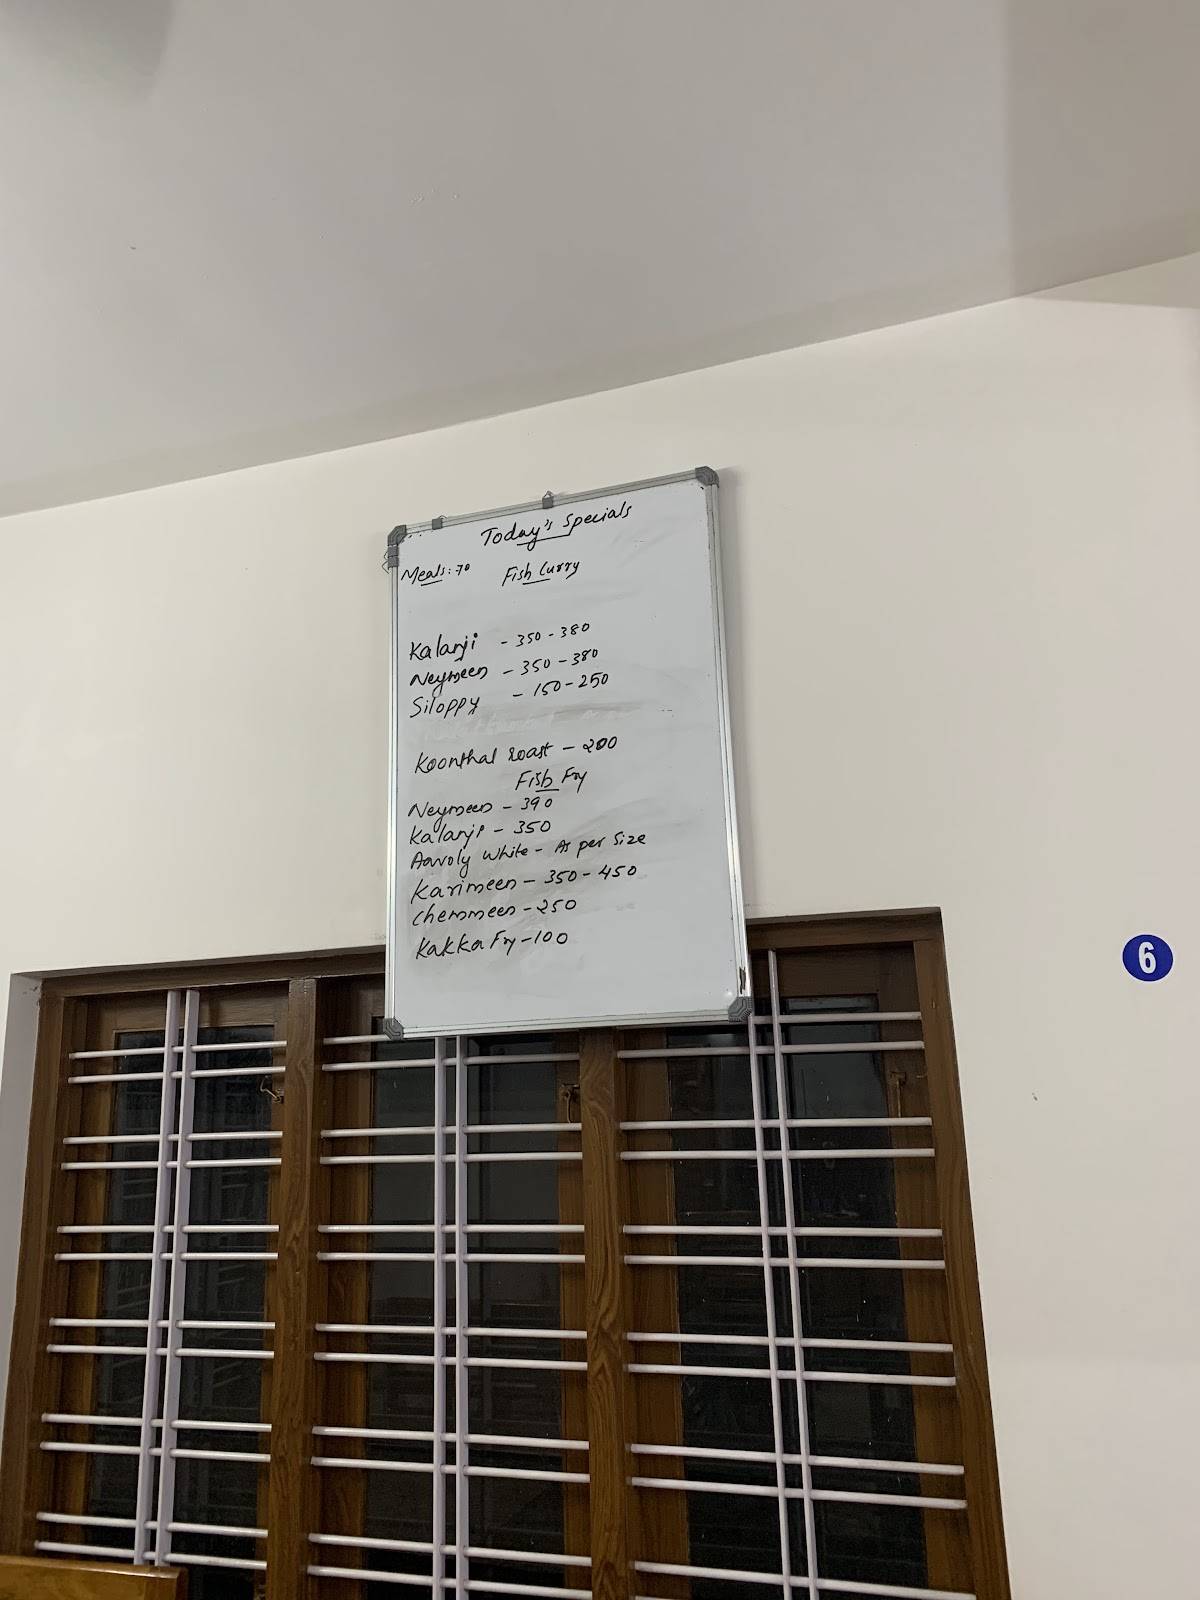 Today's Specials
Meals: 70 Fish Curry
Kalanji - 350-380
Neymeen - 350-380
Siloppy - 150-250
Koonthal roast - 200
Fish Fry
Neymeen - 390
Kalanji - 350
Aavoly White - As per Size
Karimeen - 350-450
Chemmeen - 250
Kakka Fry - 100
6